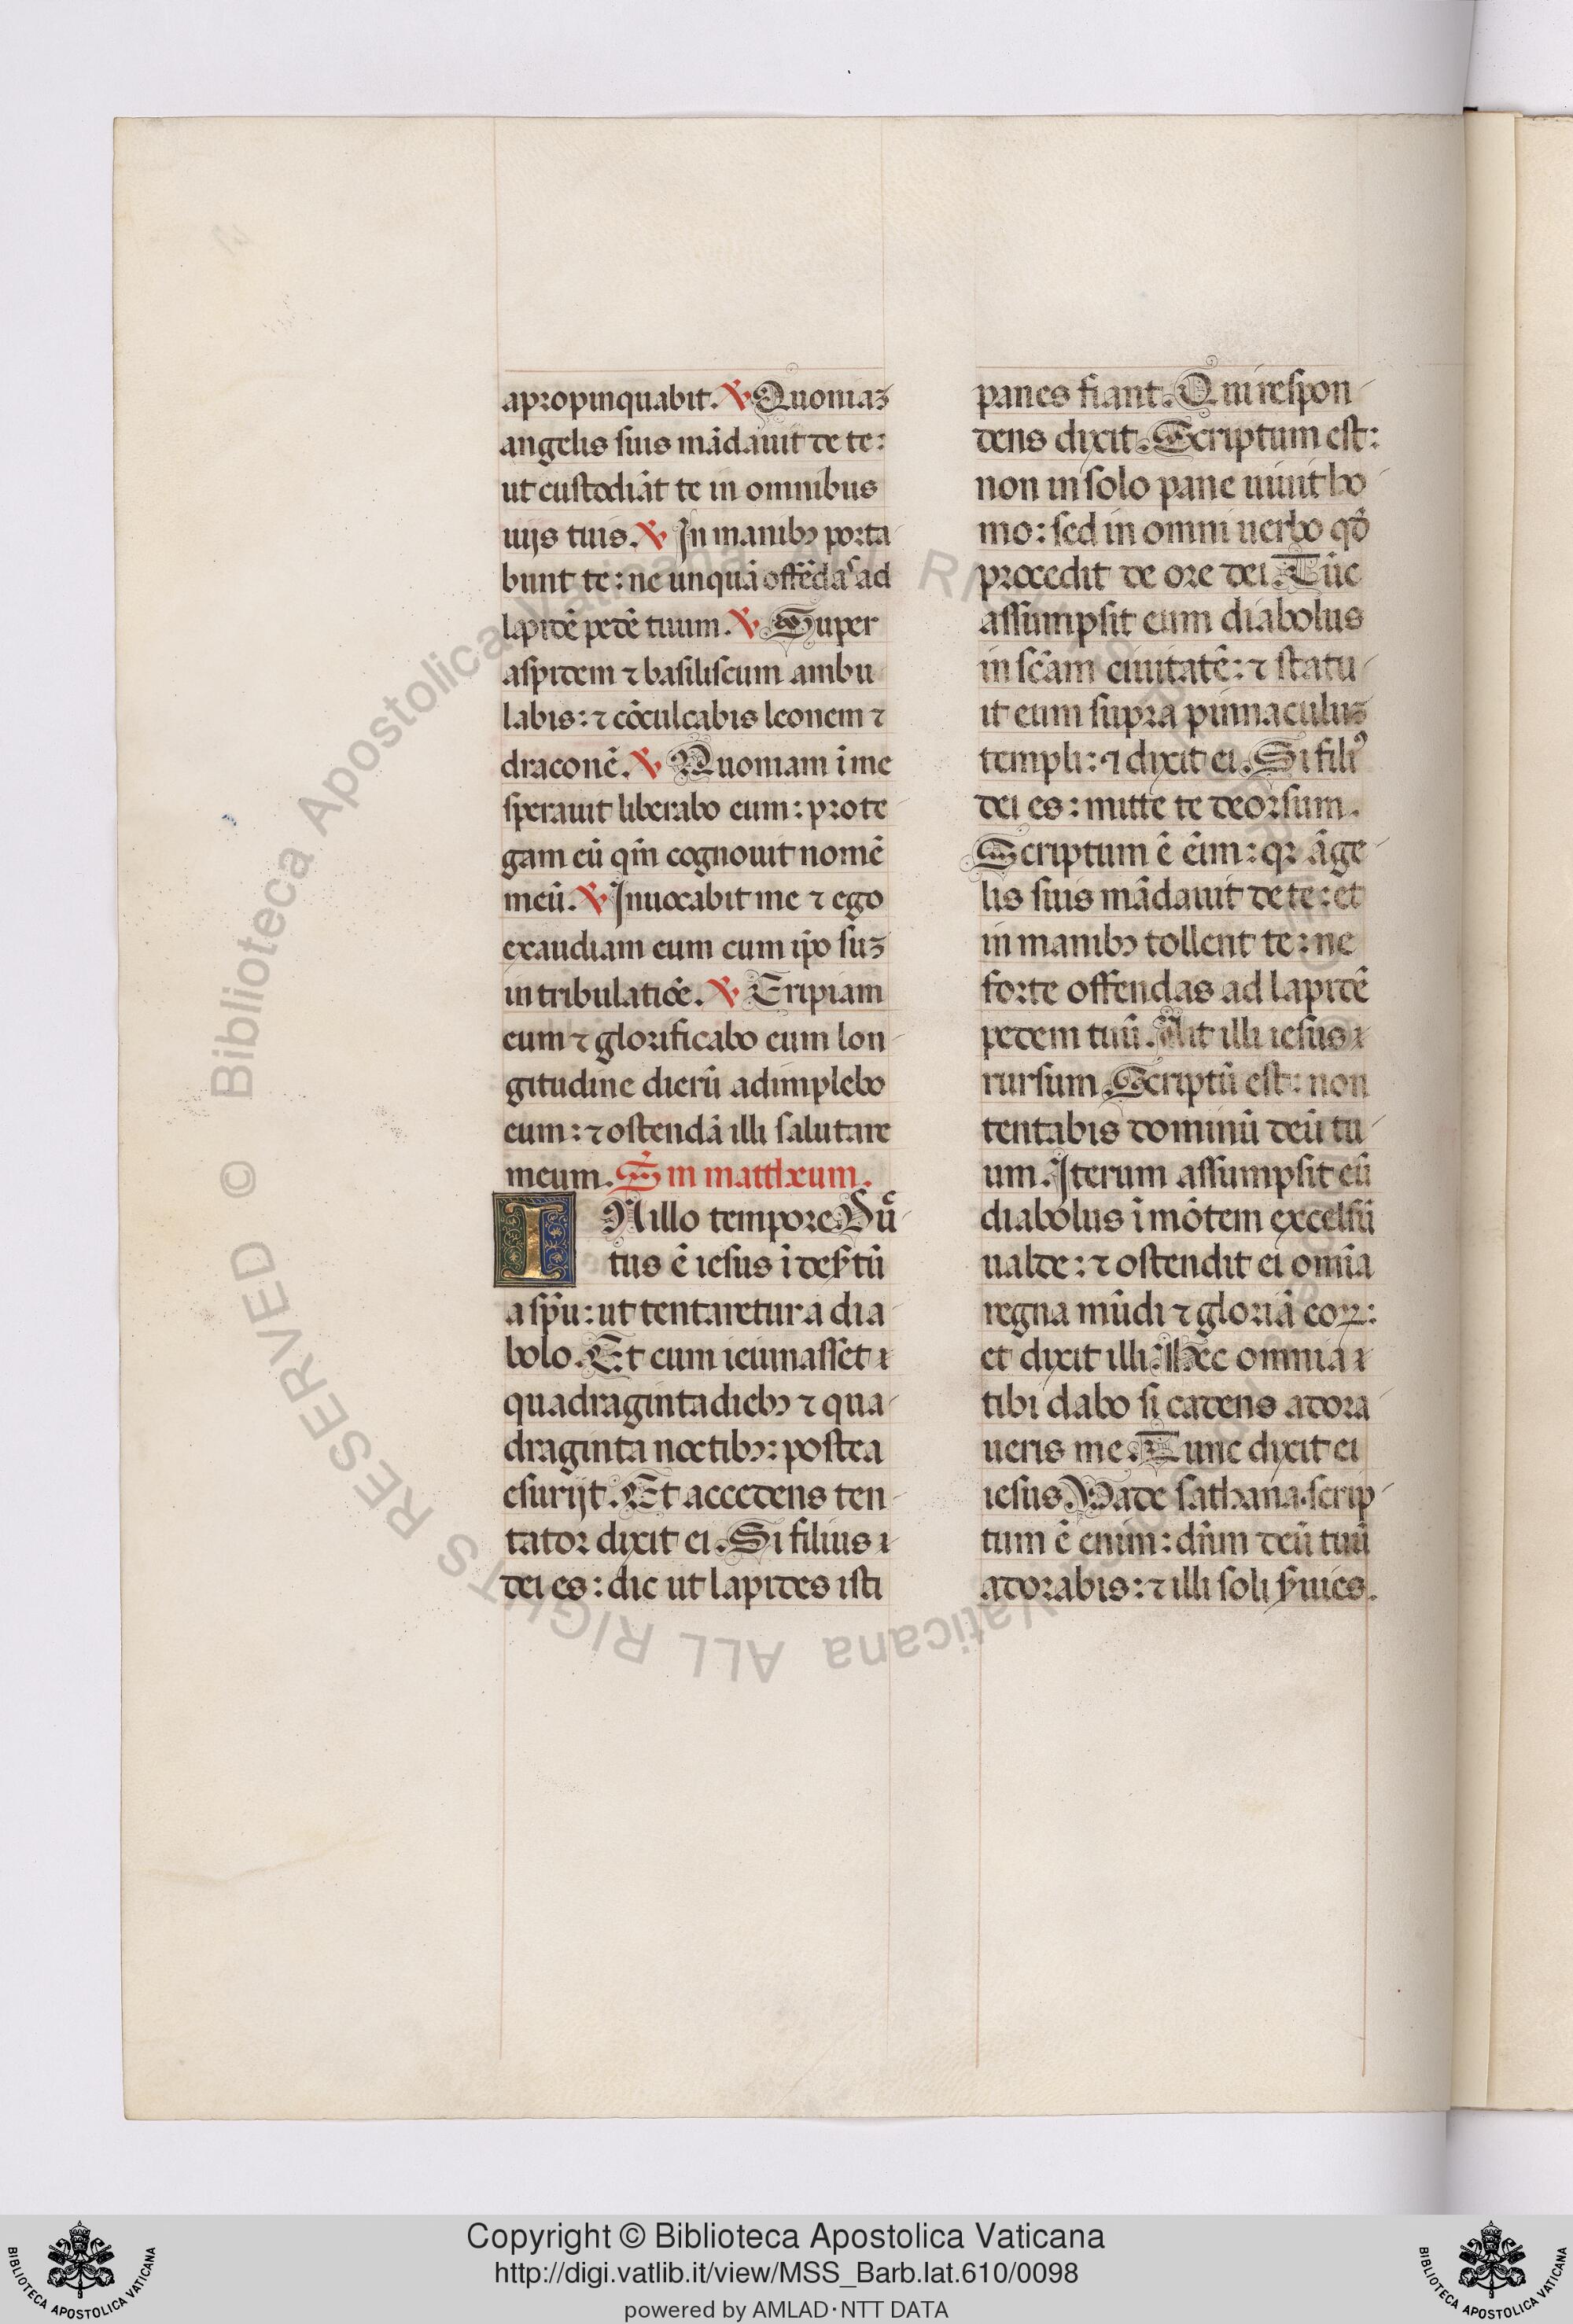 apropinquabit. ℣ Quoniaꝫ
angelis suis mādauit de te:
ut custodiāt te in omnibus
uijs tuis. ℣ In manibꝰ porta
bunt te: ne unquā offēdas ad
lapidē pedē tuum. ℣ Super
aspidem ⁊ basiliscum ambu
labis: ⁊ cōculcabis leonem ⁊
draconē. ℣ Quoniam ī me
sperauit liberabo eum: prote
gam eū qm̄ cognouit nomē
meū. ℣ Inuocabit me ⁊ ego
exaudiam eum cum ip̄o suꝫ
in tribulatiōe. ℣ Eripiam
eum ⁊ glorificabo eum lon
gitudine dierū adimplebo
eum: ⁊ ostendā illi salutare
meum. S̄ m mattheum.
IN illo tempore Du᷒
tus ē iesus ī des̄tū
a sp̄u: ut tentaretur a dia
bolo. Et cum ieiunasset
quadraginta diebꝰ ⁊ qua
draginta noctibꝰ: postea
esurijt. Et accedens ten
tator dixit ei. Si filius
dei es: dic ut lapides isti
panes fiant. Qui respon
dens dixit. Scriptum est:
non in solo pane uiuit ho
mo: sed in omni uerbo qd̄
procedit de ore dei. Tūc
assumpsit eum diabolus
in sc̄am ciuitatē: ⁊ statu
it eum supra pinnaculuꝫ
templi: ⁊ dixit ei. Si filiꝰ
dei es: mitte te deorsum.
Scriptum ē eīm: qꝛ āge
lis suis mādauit de te: et
in manibꝰ tollent te: ne
forte offendas ad lapidē
pedem tuū. Ait illi iesus
rursum Scriptū est: non
tentabis dominū deū tu
um. Iterum assumpsit eū
diabolus ī mōtem excelsū
ualde: ⁊ ostendit ei om̄ia
regna mūdi ⁊ gloriā eoꝝ:
et dixit illi. Hec omnia
tibi dabo si cadens adora
ueris me. Tunc dixit ei
iesus Vade sathana. scrip
tum ē enim: dn̄m deū tuū
adorabis: ⁊ illi soli s̄uies.
© Biblioteca Apostolica Vaticana ALL RIGHTS RESERVED
Copyright © Biblioteca Apostolica Vaticana
http://digi.vatlib.it/view/MSS_Barb.lat.610/0098
powered by AMLAD·NTT DATA
BIBLIOTECA APOSTOLICA VATICANA
BIBLIOTECA APOSTOLICA VATICANA